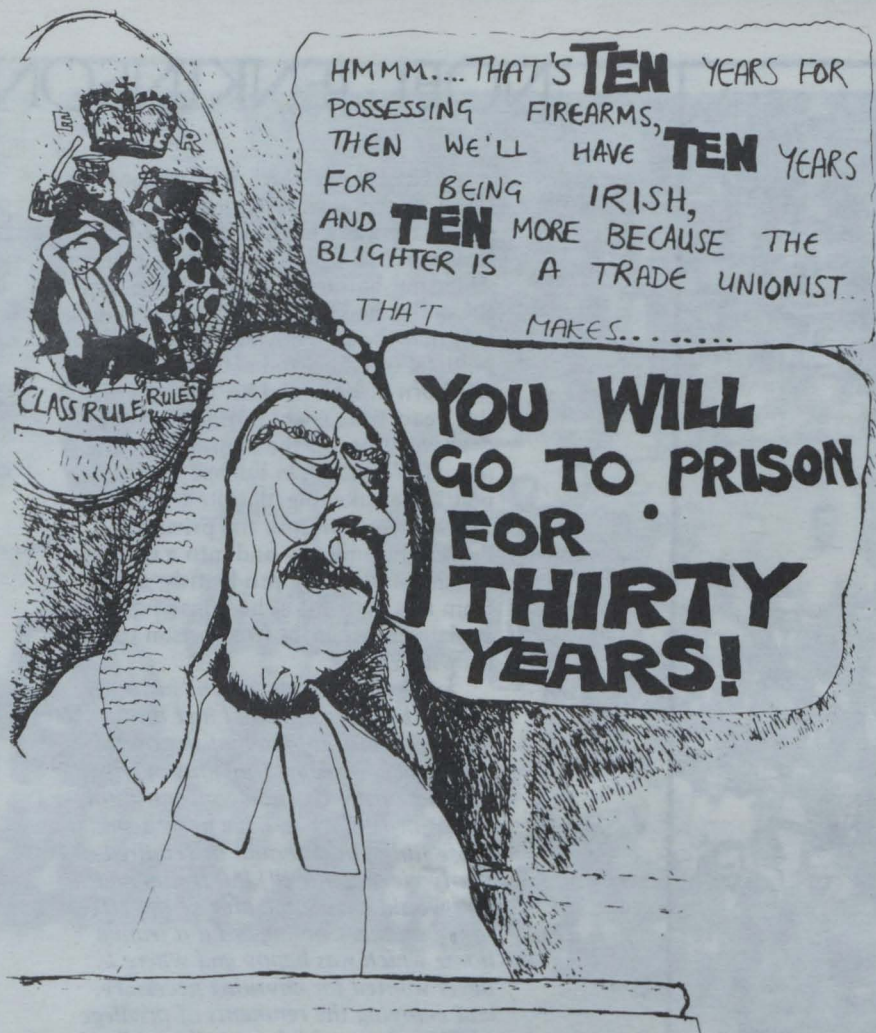 E R
CLASS RULE RULES
HMMM....THAT'S TEN YEARS FOR
POSSESSING FIREARMS,
THEN WE'LL HAVE TEN YEARS
FOR BEING IRISH,
AND TEN MORE BECAUSE THE
BLIGHTER IS A TRADE UNIONIST..
THAT MAKES........
YOU WILL
GO TO PRISON
FOR
THIRTY
YEARS!